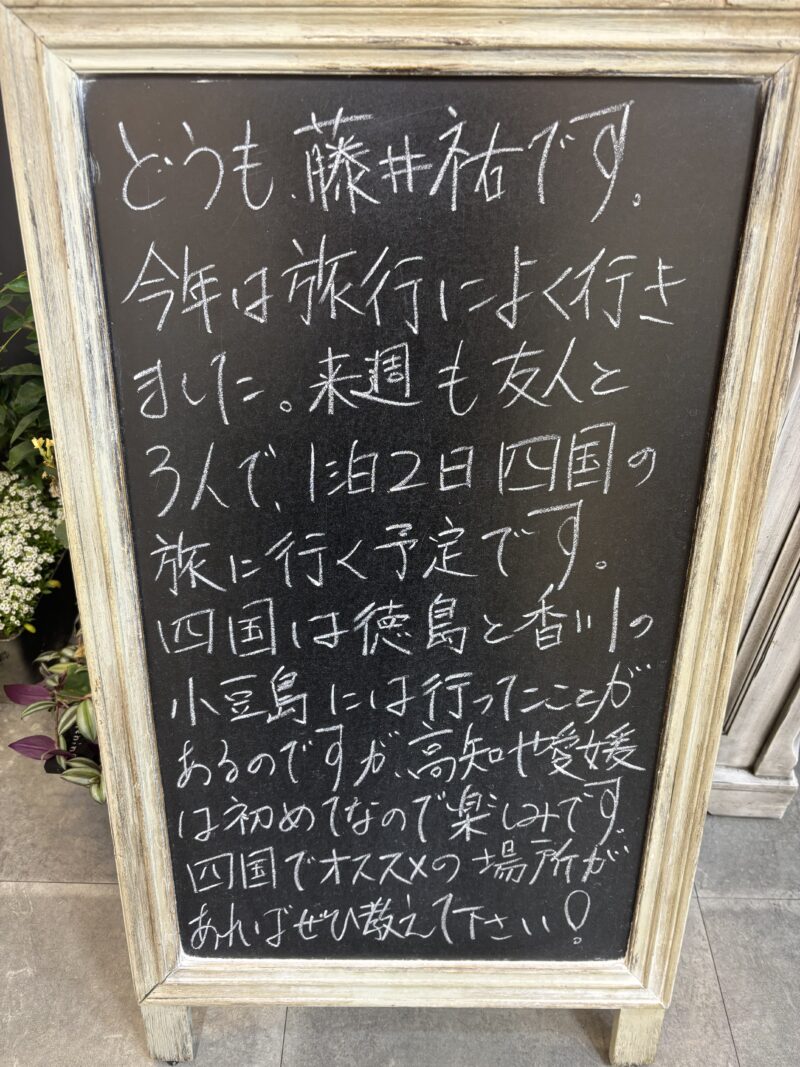 どうも、藤井祐です。
今年は旅行によく行き
ました。来週も友人と
3人で、1泊2日四国の
旅に行く予定です。
四国は徳島と香川の
小豆島には行ったことが
あるのですが、高知や愛媛
は初めてなので楽しみです
四国でオススメの場所が
あればぜひ教えて下さい!